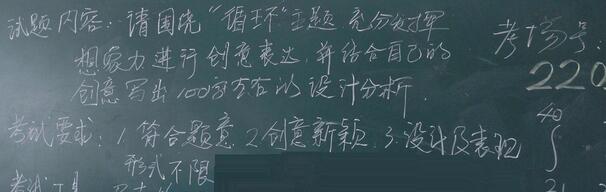 试题内容：请围绕“循环”主题充分发挥
想象力进行创意表达，并结合自己的
创意写出100字左右的设计分析.
考试要求：1.符合题意 2.创意新颖 3.设计及表现
形式不限
考场号：
220
40